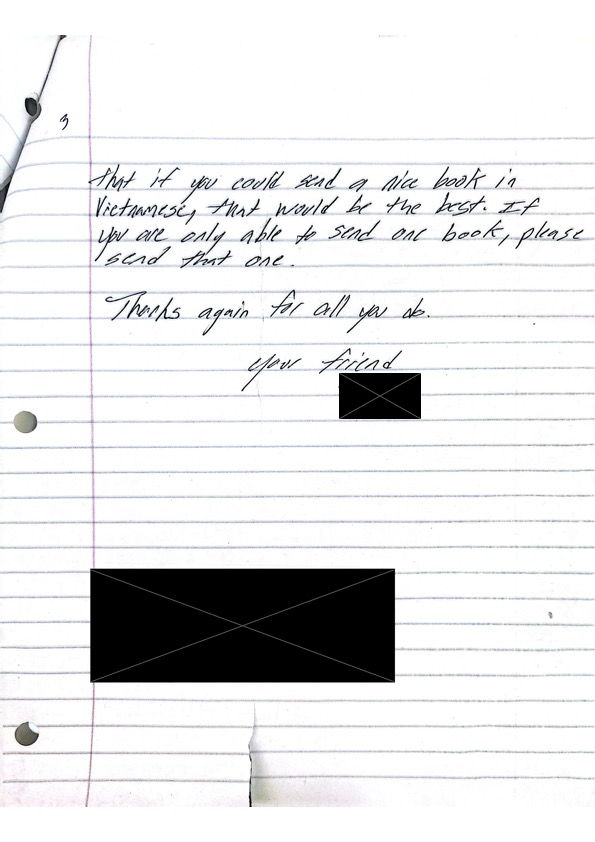 3
that if you could send a nice book in
Vietnamese, that would be the best. If
you are only able to send one book, please
send that one.
Thanks again for all you do.
your friend